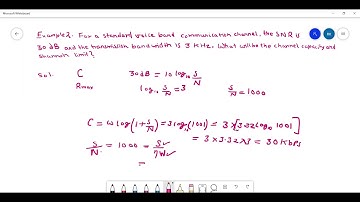 Example 2. For a standard voice band communication channel, the SNR is
30 dB and the transmission bandwidth is 3 kHz. What will be the channel capacity and
shannon limit?
Sol. C 30 dB = 10 log10 S/N
Rmax log10 S/N = 3 S/N = 1000
C = ω log (1 + S/N) = 3 log (1001) = 3 × [3.32 log10 1001]
= 3 × 3.32 × 3 = 30 kbps
S/N = 1000 = S/ηW
=